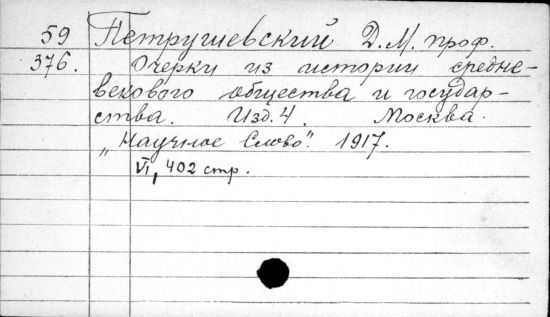 59 Петрушевский Д. М. проф.
376. Очерки из истории средне-
векового общества и государ-
ства. Изд. 4. Москва.
„Научное Слово“. 1917.
VI, 402 стр.